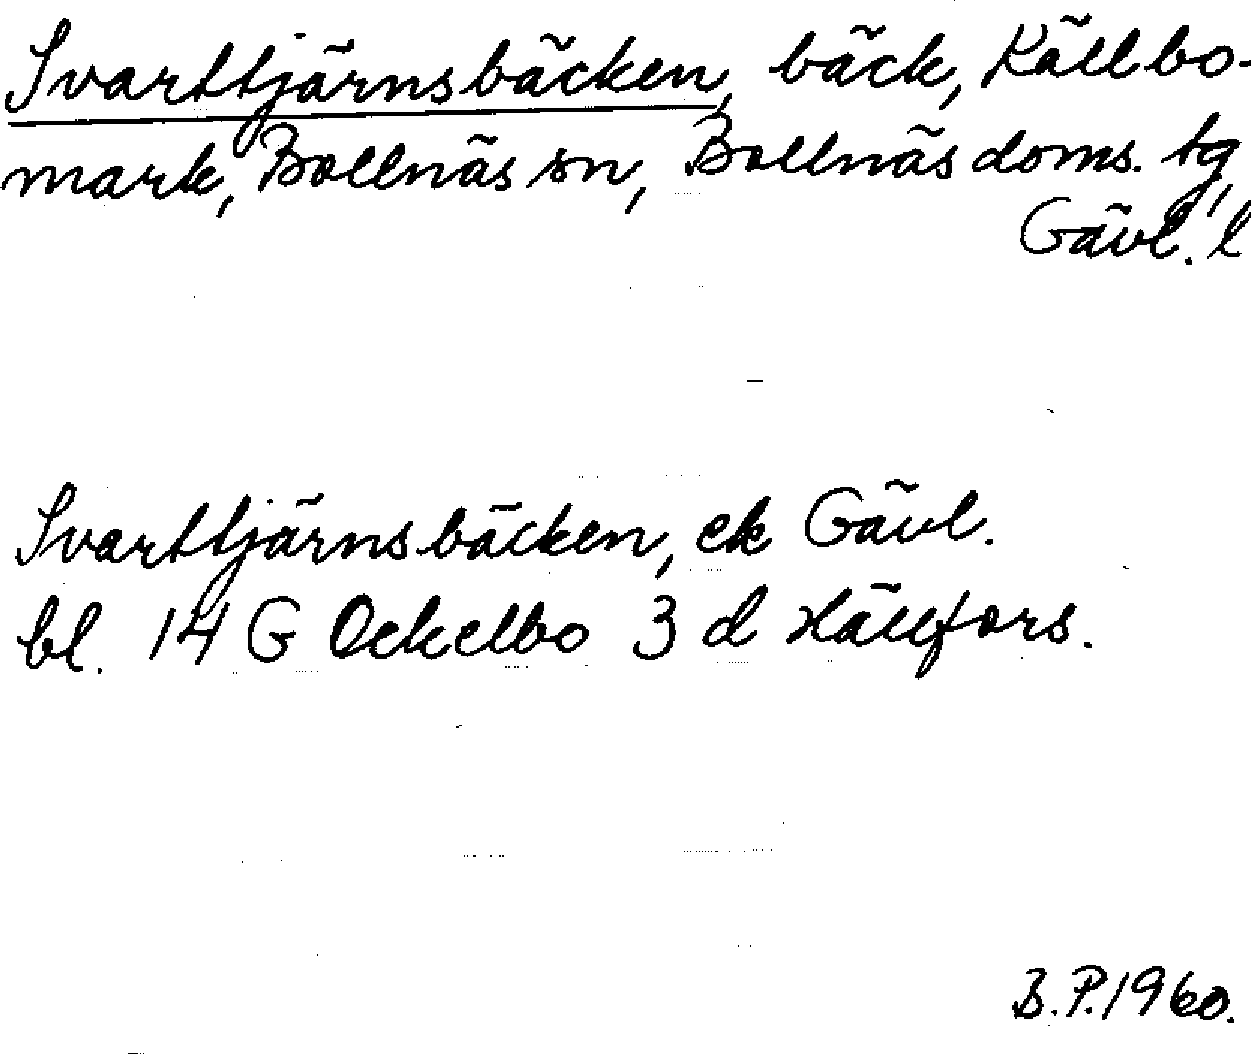 Svarttjärnsbäcken, bäck, Källbo-
mark, Bollnäs sn, Bollnäs doms. tg,
Gävl. l
Svarttjärnsbäcken, ek Gävl.
bl. 14 G Ockelbo 3 d Hällfors.
B.P. 1960.